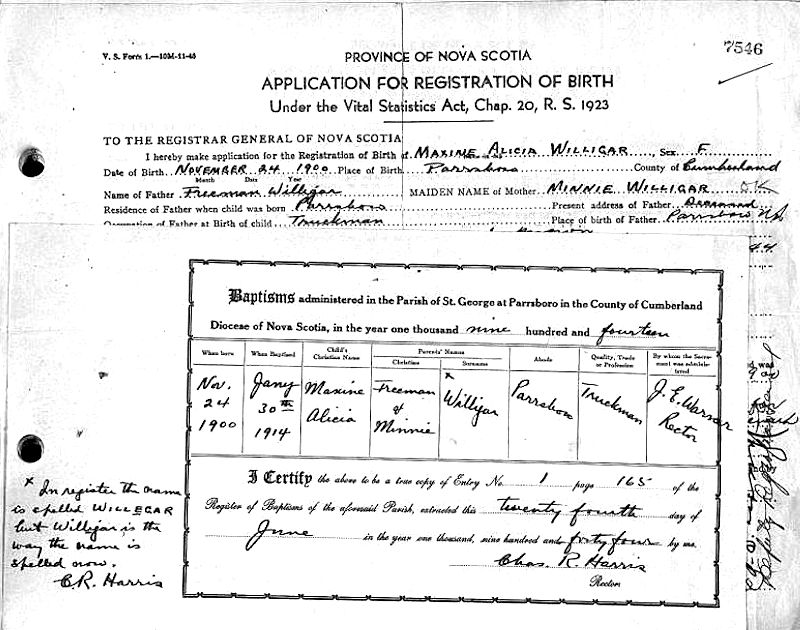 7546
V. S. Form 1.—10M-11-43
PROVINCE OF NOVA SCOTIA
APPLICATION FOR REGISTRATION OF BIRTH
Under the Vital Statistics Act, Chap. 20, R. S. 1923
TO THE REGISTRAR GENERAL OF NOVA SCOTIA
I hereby make application for the Registration of Birth of MAXINE ALICIA WILLIGAR, Sex F
Date of Birth NOVEMBER 24 1900 Place of Birth Parrsboro County of Cumberland
Month Date Year
Name of Father Freeman Willigar MAIDEN NAME of Mother MINNIE WILLIGAR OK
Residence of Father when child was born Parrsboro Present address of Father Deceased
Occupation of Father at Birth of child Truckman Place of birth of Father Parrsboro NS
Baptisms administered in the Parish of St. George at Parrsboro in the County of Cumberland
Diocese of Nova Scotia, in the year one thousand nine hundred and fourteen
When born When Baptised Child's Christian Name Parents' Names Christian Surname Abode Quality, Trade or Profession By whom the Sacrament was administered
Nov. 24 1900 Jany 30th 1914 Maxine Alicia Freeman & Minnie x Willigar Parrsboro Truckman J. E. Warner Rector
I Certify the above to be a true copy of Entry No. 1 page 165 of the
Register of Baptisms of the aforesaid Parish, extracted this twenty fourth day of
June in the year one thousand, nine hundred and forty four by me.
Chas. R. Harris
Rector
x In register the name
is spelled WILLEGAR
but Willigar is the
way the name is
spelled now.
C.R. Harris
Deputy Registrar